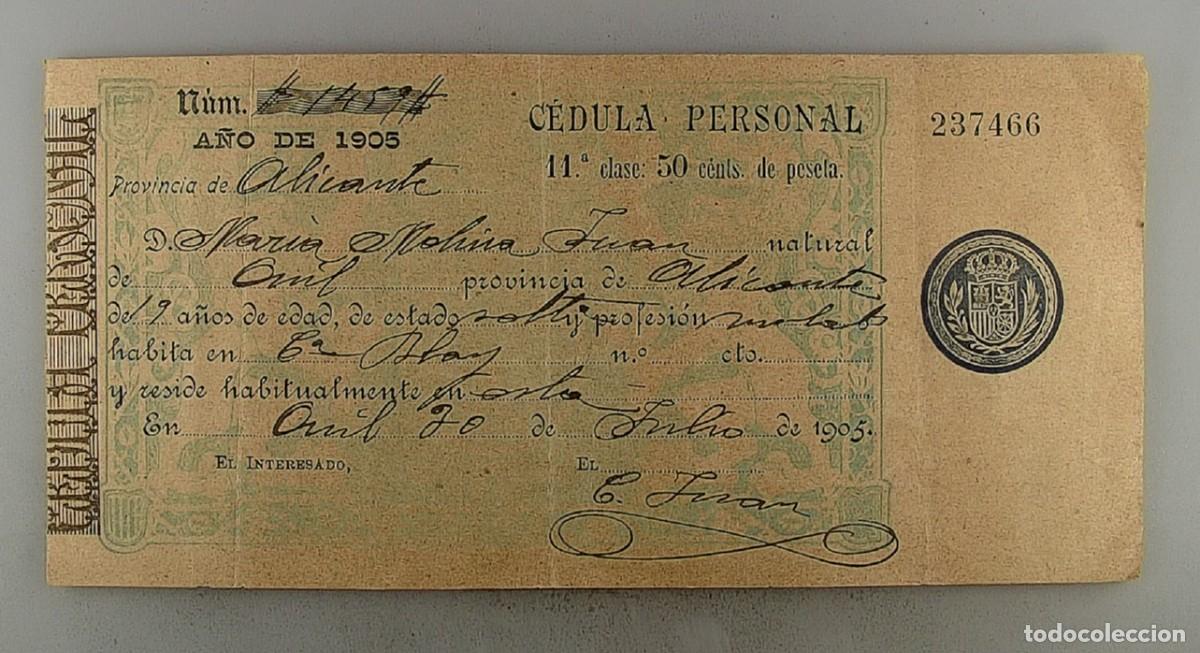 Núm. # 1459 #
CÉDULA PERSONAL
237466
AÑO DE 1905
11.ª clase: 50 cénts. de peseta.
Provincia de Alicante
D. Maria Molina Juan natural
de Onil provincia de Alicante
de 19 años de edad, de estado y profesión
habita en Blay n.º cto.
y reside habitualmente en esta
En Onil 20 de Julio de 1905.
EL INTERESADO,
EL
C. Juan
todocoleccion